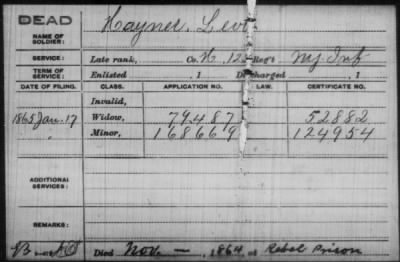 DEAD
NAME OF SOLDIER:
Haynes, Levi
SERVICE:
Late rank, Co. H, 12 Reg't NJ Inf
TERM OF SERVICE:
Enlisted , 1 Discharged , 1
DATE OF FILING. CLASS. APPLICATION NO. LAW. CERTIFICATE NO.
Invalid,
1865 Jan. 17 Widow, 79487 52882
" Minor, 168669 124954
ADDITIONAL SERVICES:
REMARKS:
Died Nov. — , 1864, at Rebel Prison